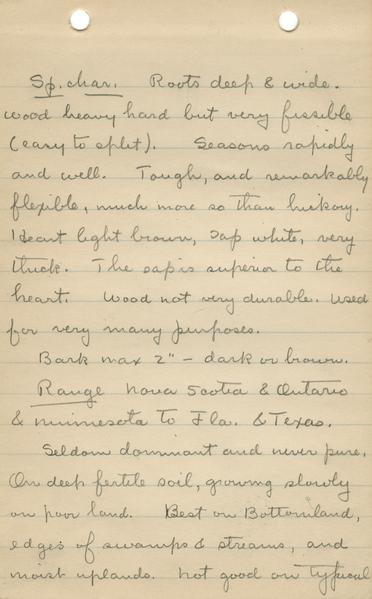 Sp. char. Roots deep & wide.
Wood heavy hard but very fissible
(easy to split). Seasons rapidly
and well. Tough, and remarkably
flexible, much more so than hickory.
Heart light brown, sap white, very
thick. The sap is superior to the
heart. Wood not very durable. Used
for very many purposes.
Bark max 2" - dark or brown.
Range Nova Scotia & Ontario
& Minnesota to Fla. & Texas.
Seldom dominant and never pure.
On deep fertile soil, growing slowly
on poor land. Best on Bottomland,
edges of swamps & streams, and
moist uplands. Not good on typical